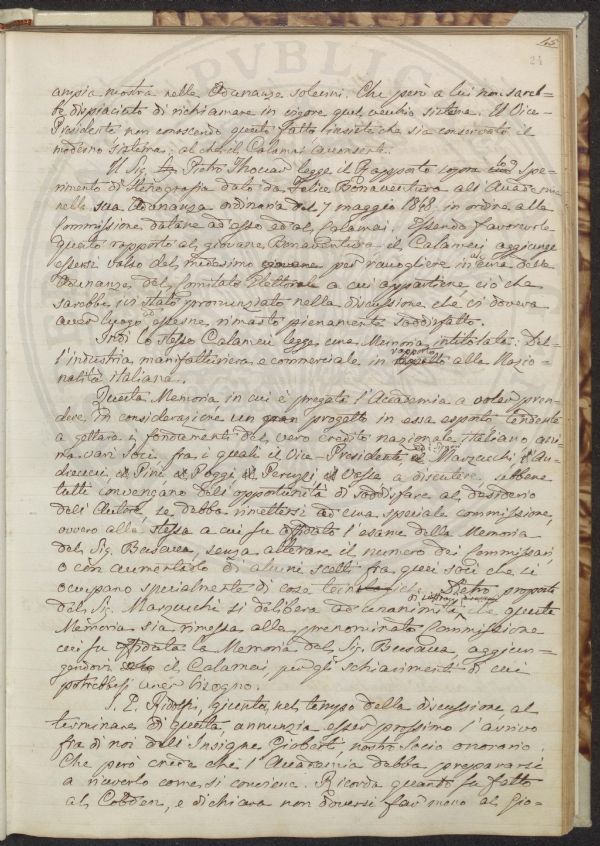 45
24
ampia mostra nelle Adunanze solenni. Che però a lui non sareb-
be dispiaciuto di richiamare in vigore quel vecchio sistema. Il Vice-
Presidente non conoscendo questo fatto insiste che sia conservato il
moderno sistema; al che il Calamai acconsente.
Il Sig. Pietro Thouar legge il Rapporto sopra lo spe-
rimento di Stenografia dato da Felice Bonaventura all'Accademia
nella sua Adunanza ordinaria del 7 maggio 1848 in ordine alla
Commissione datane ad esso ed al Calamai. Essendo favorevole
questo rapporto al giovane Bonaventura il Calamai aggiunge
essersi valso del medesimo giovane per raccogliere in alcuna delle
Adunanze del Comitato Elettorale a cui appartiene ciò che
sarebbe ivi stato pronunziato nella discussione che ci doveva
aver luogo ed esserne rimasto pienamente soddisfatto.
Indi lo stesso Calamai legge una Memoria intitolata: Del-
l'industria manifatturiera e commerciale in rapporto alla Nazio-
nalità italiana.
Questa Memoria in cui è pregata l'Accademia a voler pren-
dere in considerazione un gran progetto in essa esposto tendente
a gettare i fondamenti del vero credito nazionale Italiano ani-
ma vari Soci fra i quali il Vice-Presidente, Marzucchi l'An-
dreucci Pini, Poggi, Peruzzi, a discutere, sebbene
tutti convengano dell'opportunità di soddisfare al desiderio
dell'Autore, se debba rimettersi ad una speciale commissione,
ovvero alla stessa a cui fu affidato l'esame della Memoria
del Sig. Busacca, senza alterare il numero dei Commissari,
o con aumentarlo di alcuni scelti fra quei soci che si
occupano specialmente di cose di simil. Dietro proposta
del Sig. Marzucchi si delibera ad unanimità che questa
Memoria sia rimessa alla prenominata Commissione
cui fu affidata la Memoria del Sig. Busacca, aggiun-
gendovi il Calamai, per gli schiarimenti di cui
potrebbesi aver bisogno.
S. E. Ridolfi, giunto nel tempo della discussione, al
terminare di questa, annunzia esser prossimo l'arrivo
fra di noi dell'Insigne Gioberti nostro Socio onorario.
Che però crede che l'Accademia debba prepararsi
a riceverlo come si conviene. Ricorda quanto fu fatto
al Cobden, e dichiara non doversi far meno al Gio-